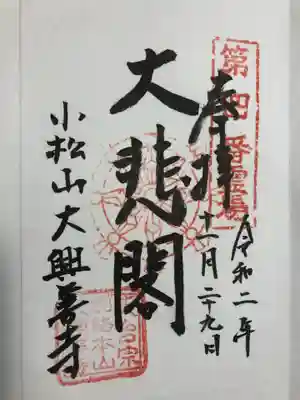 第四番霊場
令和二年
十一月二十九日
奉拝
大悲閣
小松山大興善寺